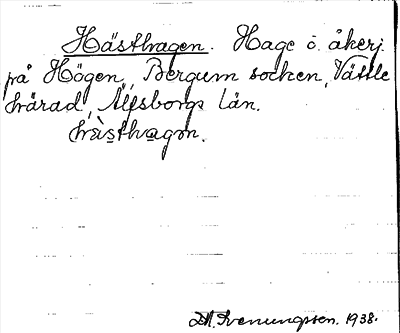 Hästhagen. Hage o. åkerj.
på Högen, Bergum socken, Vättle
härad, Älfsborgs län.
hä̀sthagɒn.
Svenungsson. 1938.